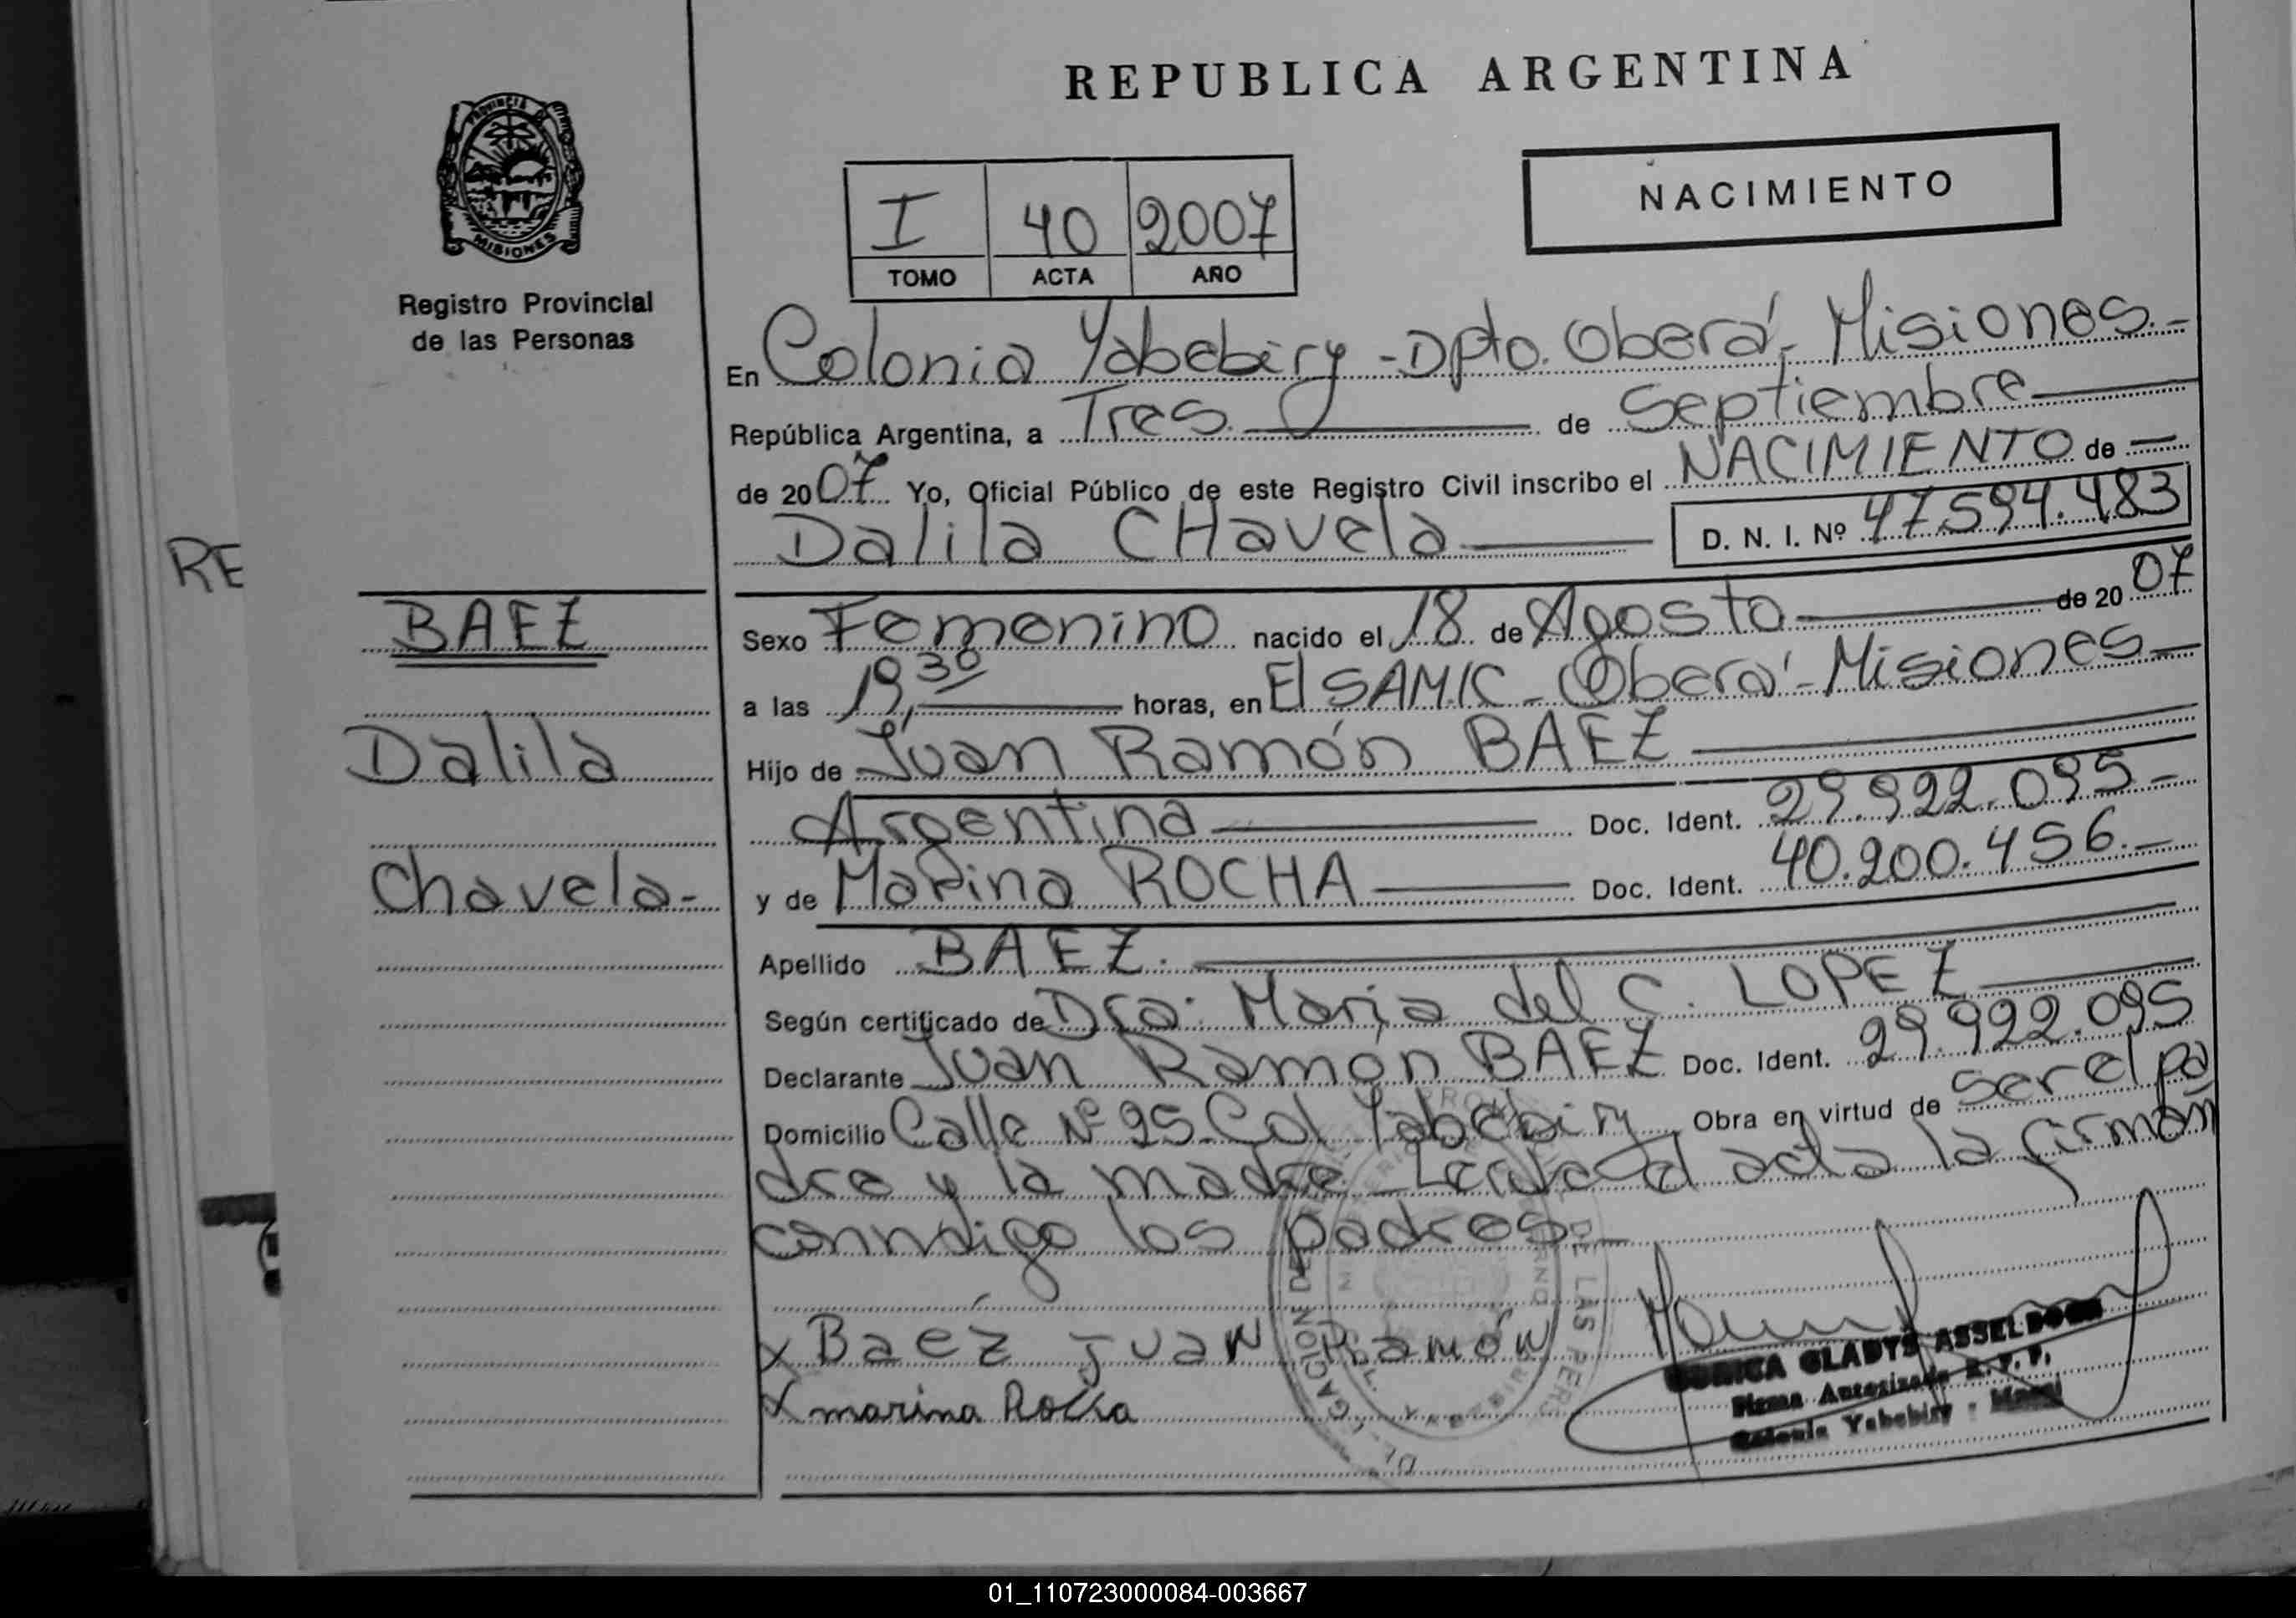 REPUBLICA ARGENTINA
PROVINCIA DE
MISIONES
Registro Provincial
de las Personas
NACIMIENTO
I 40 2007
TOMO ACTA AÑO
En Colonia Yabebiry - Dpto. Oberá - Misiones.-
República Argentina, a Tres de Septiembre
de 2007 Yo, Oficial Público de este Registro Civil inscribo el NACIMIENTO de
Dalila CHavela D. N. I. Nº 47.594.483
RE
BAEZ
Dalila
Chavela-
Sexo Femenino nacido el 18 de Agosto de 2007
a las 19,30 horas, en El SAMIC - Oberá - Misiones
Hijo de Juan Ramón BAEZ
Argentina Doc. Ident. 29.922.095-
y de Marina ROCHA Doc. Ident. 40.200.456.-
Apellido BAEZ.
Según certificado de Dra. María del C. LOPEZ
Declarante Juan Ramón BAEZ Doc. Ident. 29.922.095
Domicilio Calle Nº 25 Col Yabebiry Obra en virtud de ser el pa
dre y la madre. Leída el acta la firman
conmigo los padres.-
x Baez Juan Ramón
x marina Rocha
GLADYS
Firma Autorizada R. P. P.
Colonia Yabebiry - Mnes
DE LAS PERS
01_110723000084-003667